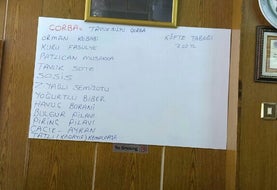 ÇORBA: TAVUK SUYU ÇORBA
ORMAN KEBABI
KURU FASULYE
PATLICAN MUSAKKA
TAVUK SOTE
SOSİS
Z. YAĞLI SEMİZOTU
YOĞURTLU BİBER
HAVUÇ BORANİ
BULGUR PİLAVI
PİRİNÇ PİLAVI
CACIK - AYRAN
TATLI: KADAYIF, KEMALPAŞA
KÖFTE TABAĞI
No Smoking